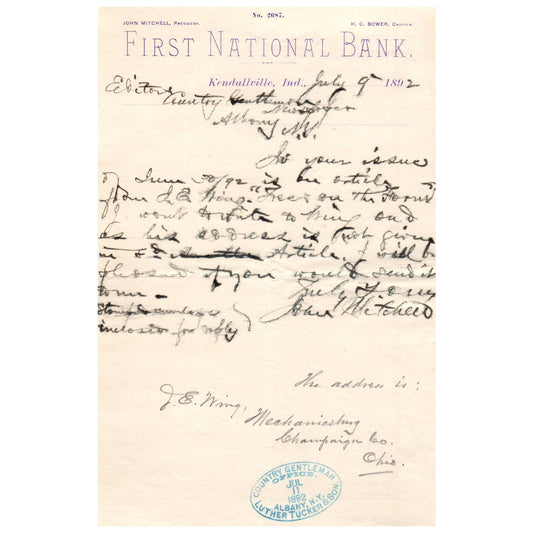 No. 2687.
JOHN MITCHELL, PRESIDENT. H. C. BOWER, CASHIER.
FIRST NATIONAL BANK.
Kendallville, Ind., July 9 1892
Editors
Country Gentleman
Albany N.Y.
In your issue
of June 30/92 is an article
from J E Wing "Trees on The Farm"
I want to write to Wing and
as his address is not given
in Article. I will be
pleased if you would send it
to me - Truly Yours
Stamped envelope John Mitchell
inclosed for reply
The address is:
J. E. Wing,
Mechanicsburg
Champaign Co.
Ohio.
COUNTRY GENTLEMAN
OFFICE.
JUL
11
1892
ALBANY, N.Y.
LUTHER TUCKER & SON.